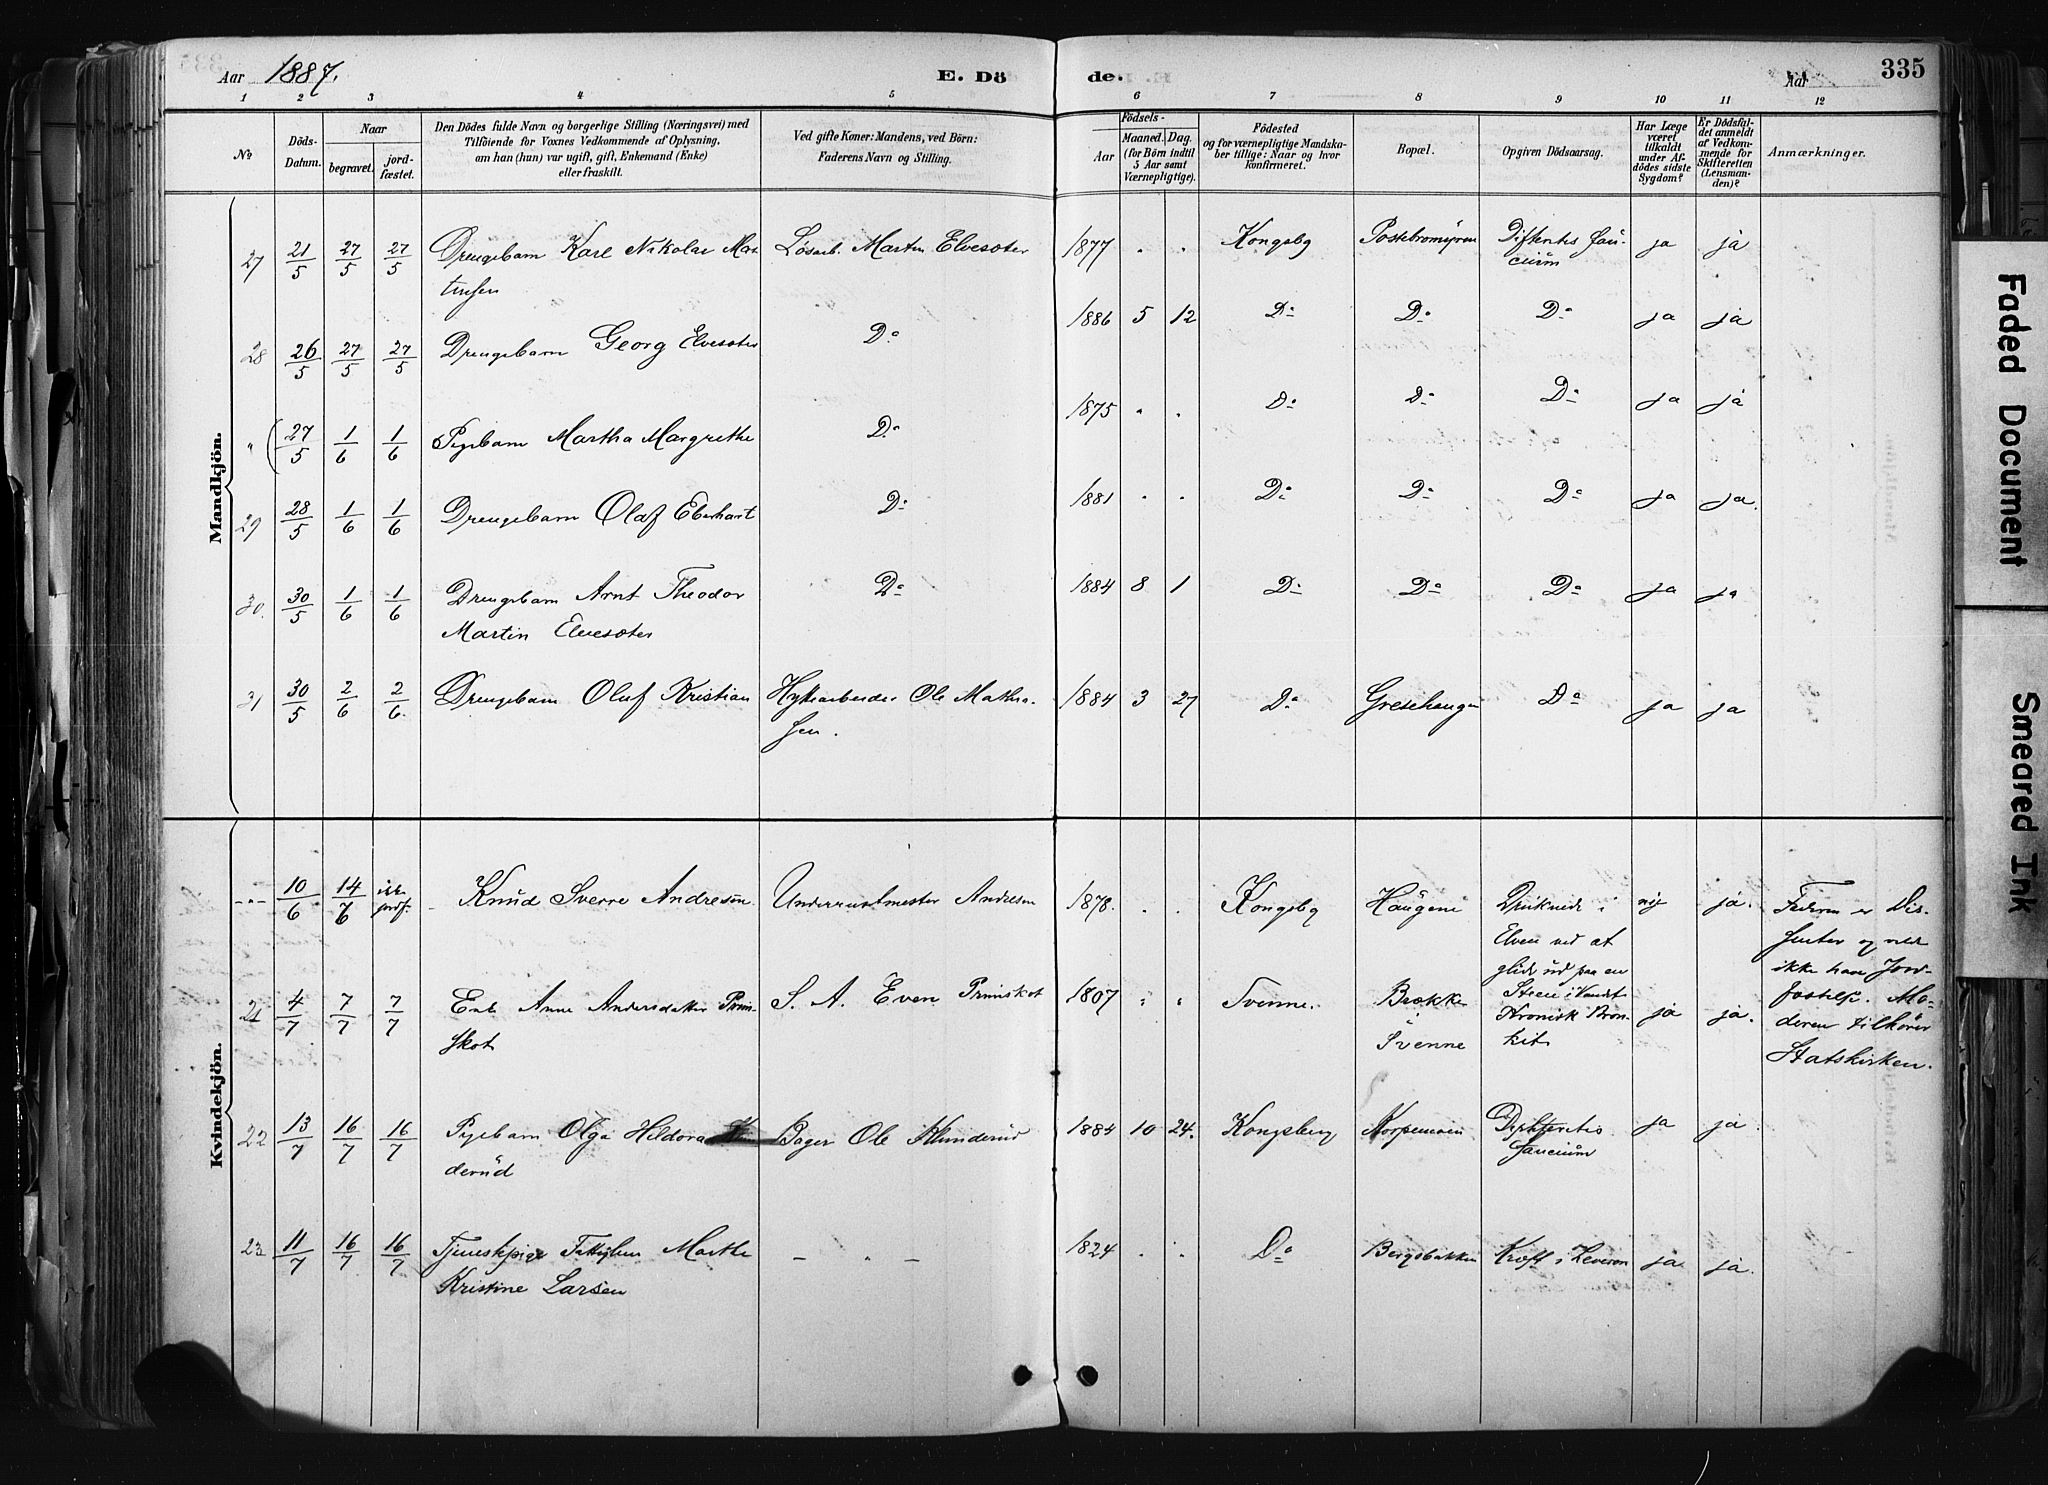 Aar 1887.
E. Dö
de.
Aar
335
1 2 3 4 5 6 7 8 9 10 11 12
No
Döds-
Datum.
Naar
begravet.
jord-
fæstet.
Den Dödes fulde Navn og borgerlige Stilling (Næringsvei) med
Tilföiende for Voxnes Vedkommende af Oplysning,
om han (hun) var ugift, gift, Enkemand (Enke)
eller fraskilt.
Ved gifte Koner: Mandens, ved Börn:
Faderens Navn og Stilling.
Födsels-
Aar
Maaned. Dag.
(for Börn indtil
5 Aar samt
Værnepligtige).
Födested
og for værnepligtige Mandska-
ber tillige: Naar og hvor
konfirmeret.
Bopæl.
Opgiven Dödsaarsag.
Har Læge
været
tilkaldt
under Af-
dödes sidste
Sygdom?
Er Dödsfal-
det anmeldt
af Vedkom-
mende for
Skifteretten
(Lensman-
den)?
Anmærkninger.
Mandkjön.
27 21/5 27/5 27/5 Drengebarn Karl Nikolai Mar- Løsarb. Martin Elvesæter 1877 " " Kongsbg Difteritis fau- ja ja
tinsen
cium
28 26/5 27/5 27/5 Drengebarn Georg Elvesæter Do 1886 5 12 Do Do Do ja ja
" (27/5 1/6 1/6 Pigebarn Martha Margrethe Do 1875 " " Do Do Do ja ja
29 28/5 1/6 1/6 Drengebarn Olaf Eberhart Do 1881 " " Do Do Do ja ja.
30. 30/5 1/6 1/6 Drengebarn Arnt Theodor Do 1884 8 1 Do Do Do ja ja
Martin Elvesæter
31 30/5 2/6 2/6 Drengebarn Oluf Kristian Hyttearbeider Ole Mathi- 1884 3 27 Do Do ja ja
sen.
Kvindekjön.
-"- 10/6 14/6 ikke Knud Sverre Andresen Andresen 1878. " " Kongsbg Haugene i nei ja. Faderen er Dis-
jordf.
Elven ved at
senter og vilde
glide ud paa en
ikke have Jord-
21 4/7 7/7 7/7 Enke Anne Andersdatter Prim- S. A. Even Primskot 1807 " " Svenne. Brække Steen i Vandet ja ja. fæstelse. Mo-
skot
i
Kronisk Bron-
deren tilhører
Svenne
kit
Statskirken.
22 13/7 16/7 16/7 Pigebarn Olga Hildora Ole Klunderud 1884 10 24. Kongsberg Korpemoen Diphteritis ja ja.
derud
faucium
23 11/7 16/7 16/7 Tjenestepige Fattiglem Marthe — " — 1824 " " Do Bergsbakken Kræft i Leveren ja. ja.
Kristine Larsen
Faded Document
Smeared Ink